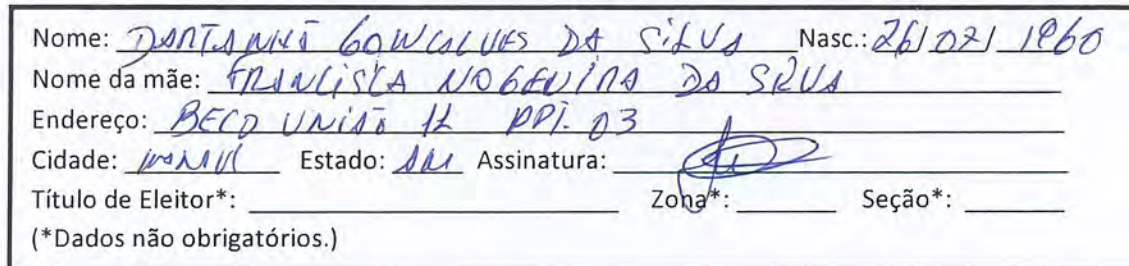 Nome: DANTANHÃ GONCALVES DA SILVA Nasc.: 26/02/1960
Nome da mãe: FRANCISCA NOGENIRA DA SILVA
Endereço: BECO UNIÃO 12 APT. 03
Cidade: Estado: AM Assinatura:
Título de Eleitor*: Zona*: Seção*:
(*Dados não obrigatórios.)